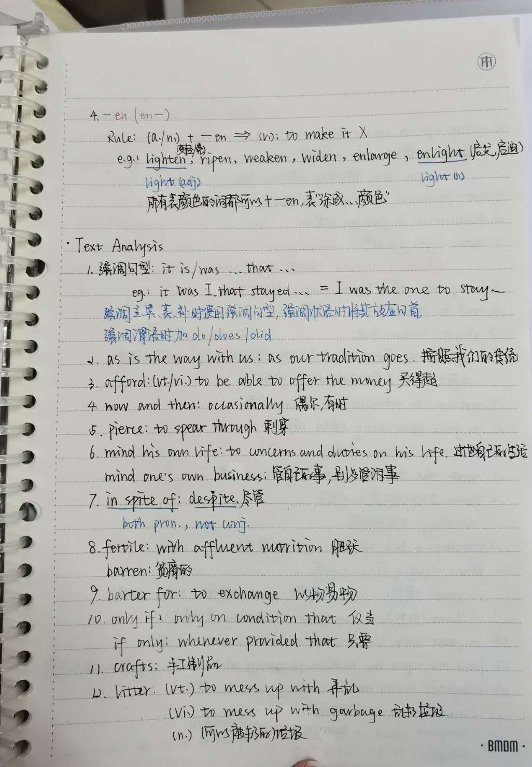 4. -en (en-)
Rule: (a./n.) + -en ⇒ (v.): to make it X
e.g.: lighten, ripen, weaken, widen, enlarge, enlight (启发, 启迪)
light (adj) light (n)
所有表颜色的词都可以 + -en, 表"涂成…颜色"
· Text Analysis
1. 强调句型: it is/was ... that ...
eg: it was I that stayed ... = I was the one to stay~
强调谓语时加 do/does/did
2. as is the way with us: as our tradition goes 按照我们的传统
3. afford: (vt/vi.) to be able to offer the money 买得起
4. now and then: occasionally 偶尔, 有时
5. pierce: to spear through 刺穿
6. mind his own life: to concerns and duties on his life 过他自己的生活
mind one's own business: 管自己的事, 别多管闲事
7. in spite of: despite 尽管
both pron., not conj.
8. fertile: with affluent nutrition 肥沃
barren: 贫瘠的
9. barter for: to exchange 以物易物
10. only if: only on condition that 仅当
if only: whenever provided that 只要
11. crafts: 手工制品
12. litter: (vt.) to mess up with 弄乱
(vi.) to mess up with garbage 乱扔垃圾
(n.) 垃圾
· BMDM ·